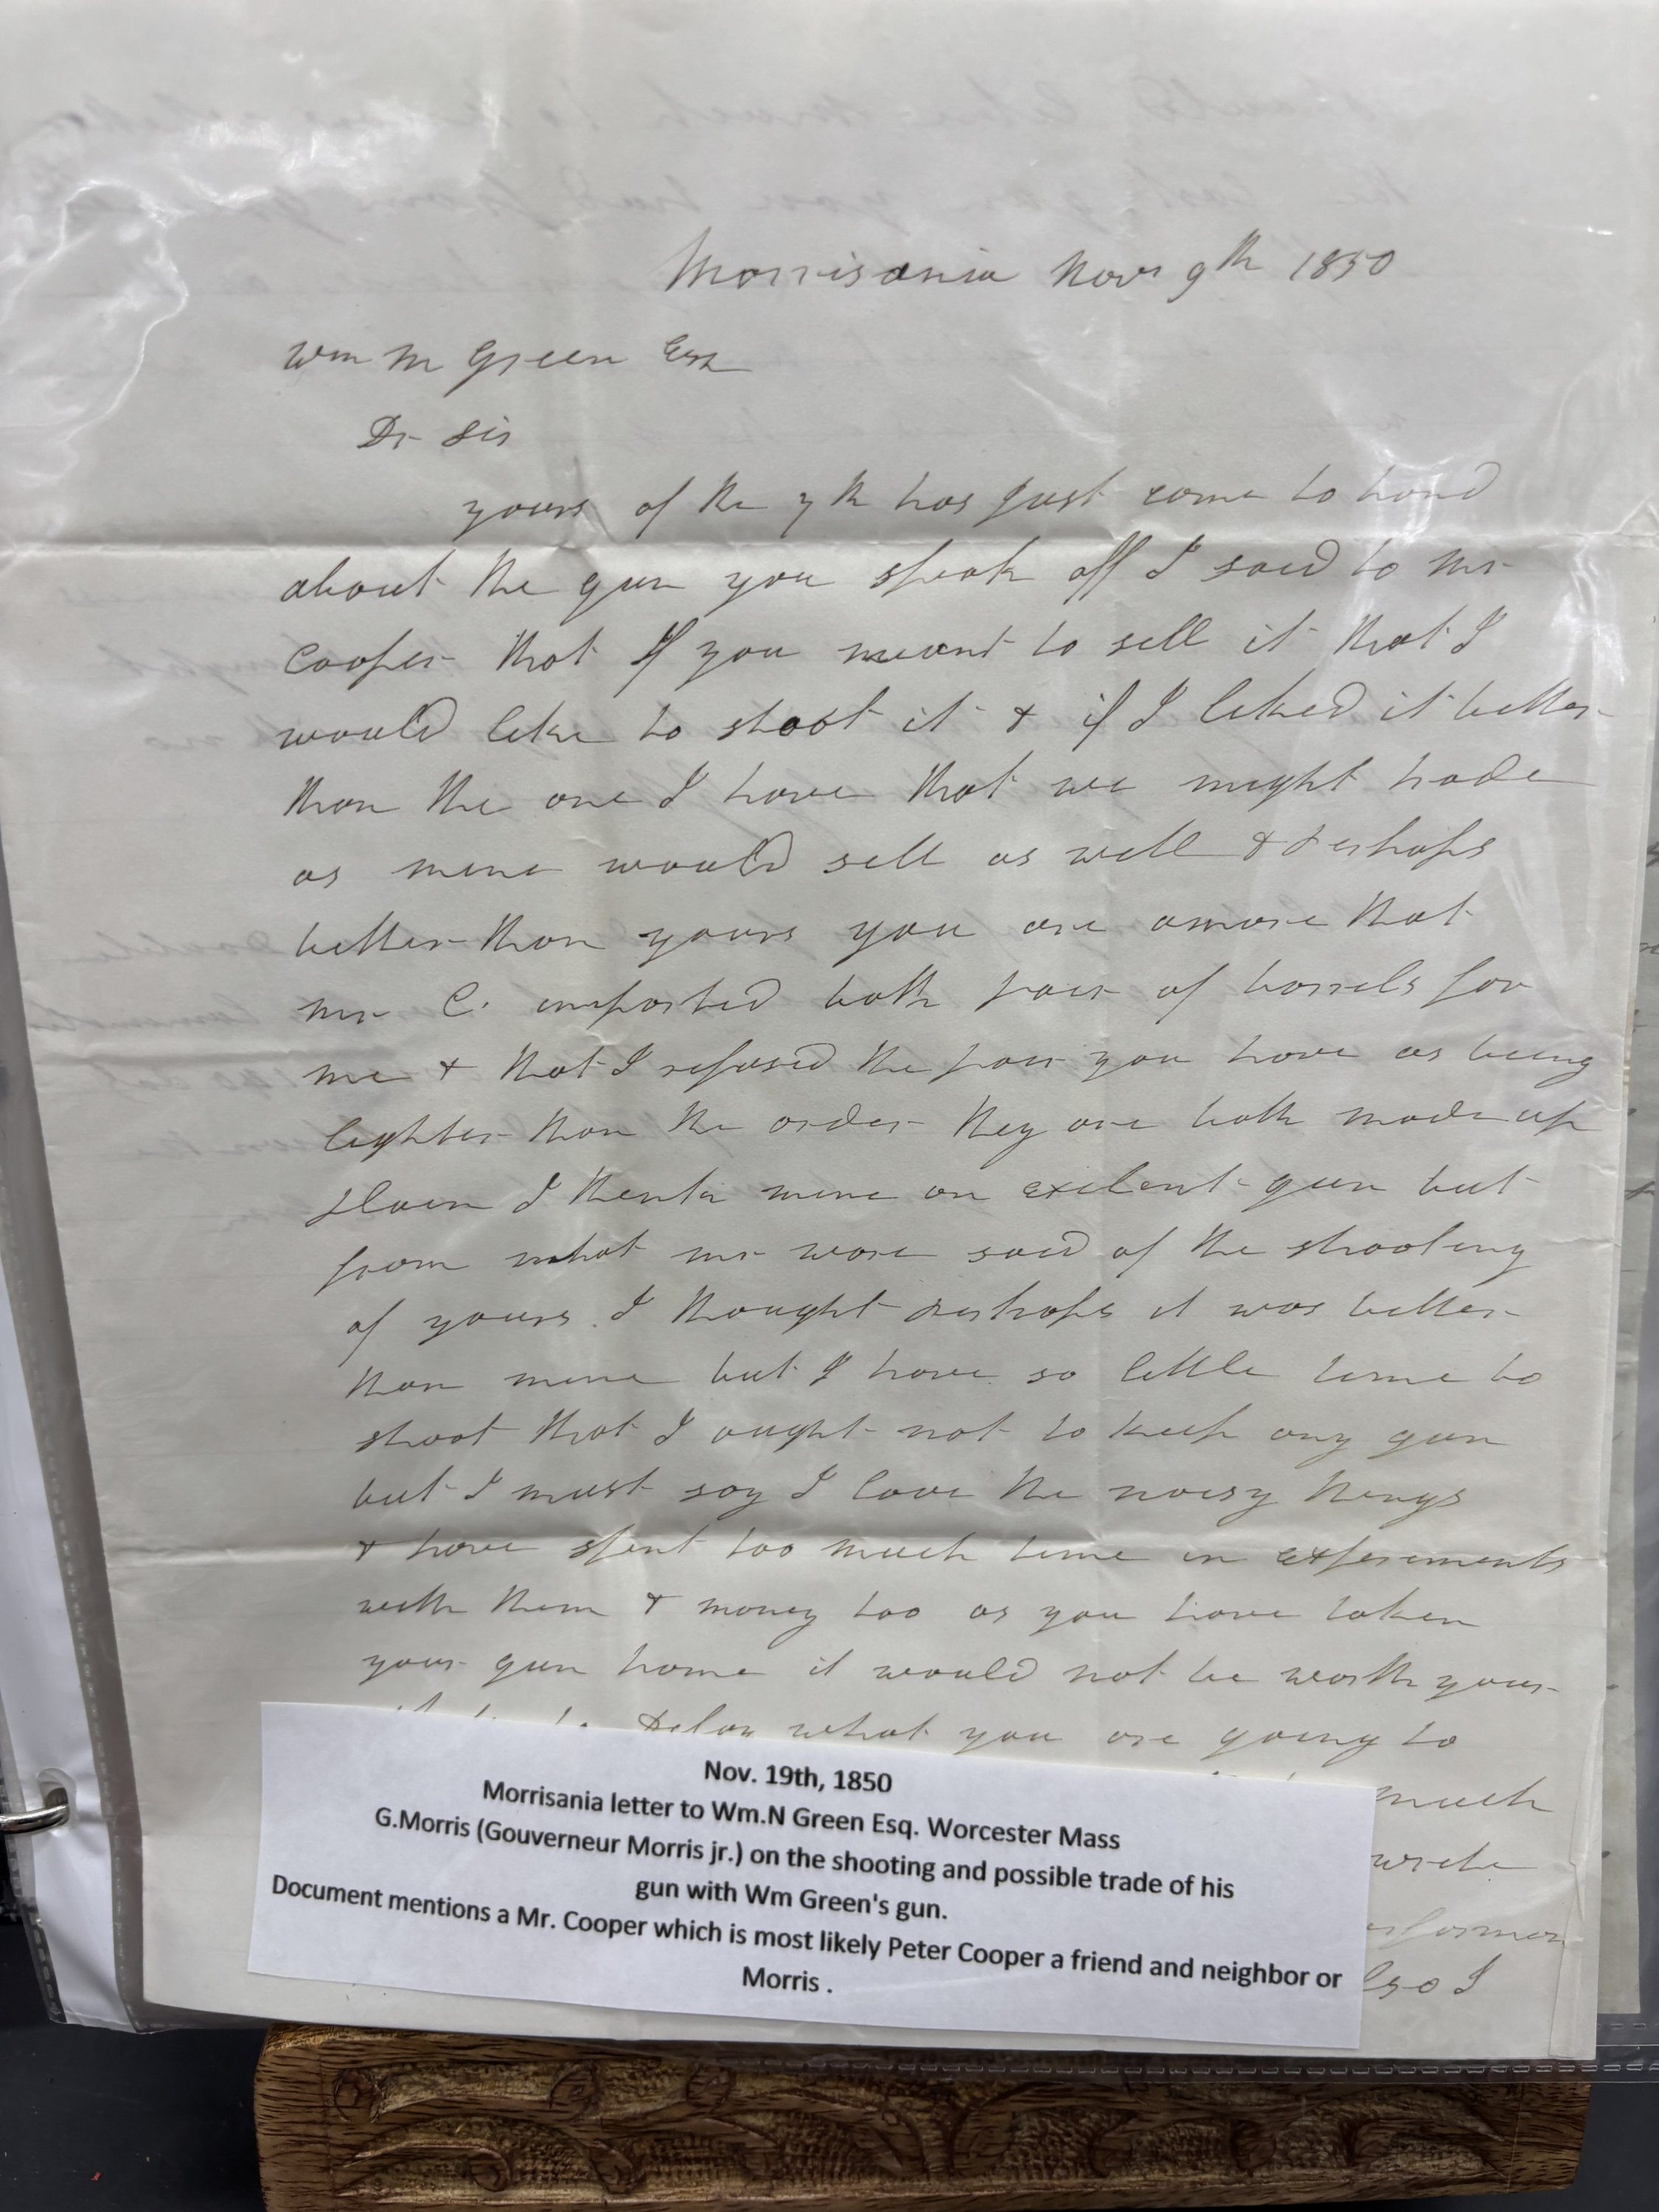 Morrisania Novr 9th 1850
Wm N Green Esq
Dr Sir
yours of the 7th has just come to hand
about the gun you speak off I said to Mr
Cooper that if you meant to sell it that I
would like to shoot it & if I liked it better
than the one I have that we might trade
as mine would sell as well & perhaps
better than yours you are aware that
Mr C. imported both pair of barrels for
me & that I refused the pair you have as being
lighter than the order they are both made up
plain I think mine an exelent gun but
from what Mr said of the shooting
of yours I thought perhaps it was better
than mine but I have so little time to
shoot that I ought not to keep any gun
but I must say I love the noisy things
& have spent too much time in experiments
with them & money too as you have taken
your gun home it would not be worth your
what you are going to
much
write
Nov. 19th, 1850
Morrisania letter to Wm.N Green Esq. Worcester Mass
G.Morris (Gouverneur Morris jr.) on the shooting and possible trade of his
gun with Wm Green's gun.
Document mentions a Mr. Cooper which is most likely Peter Cooper a friend and neighbor or
Morris .
I